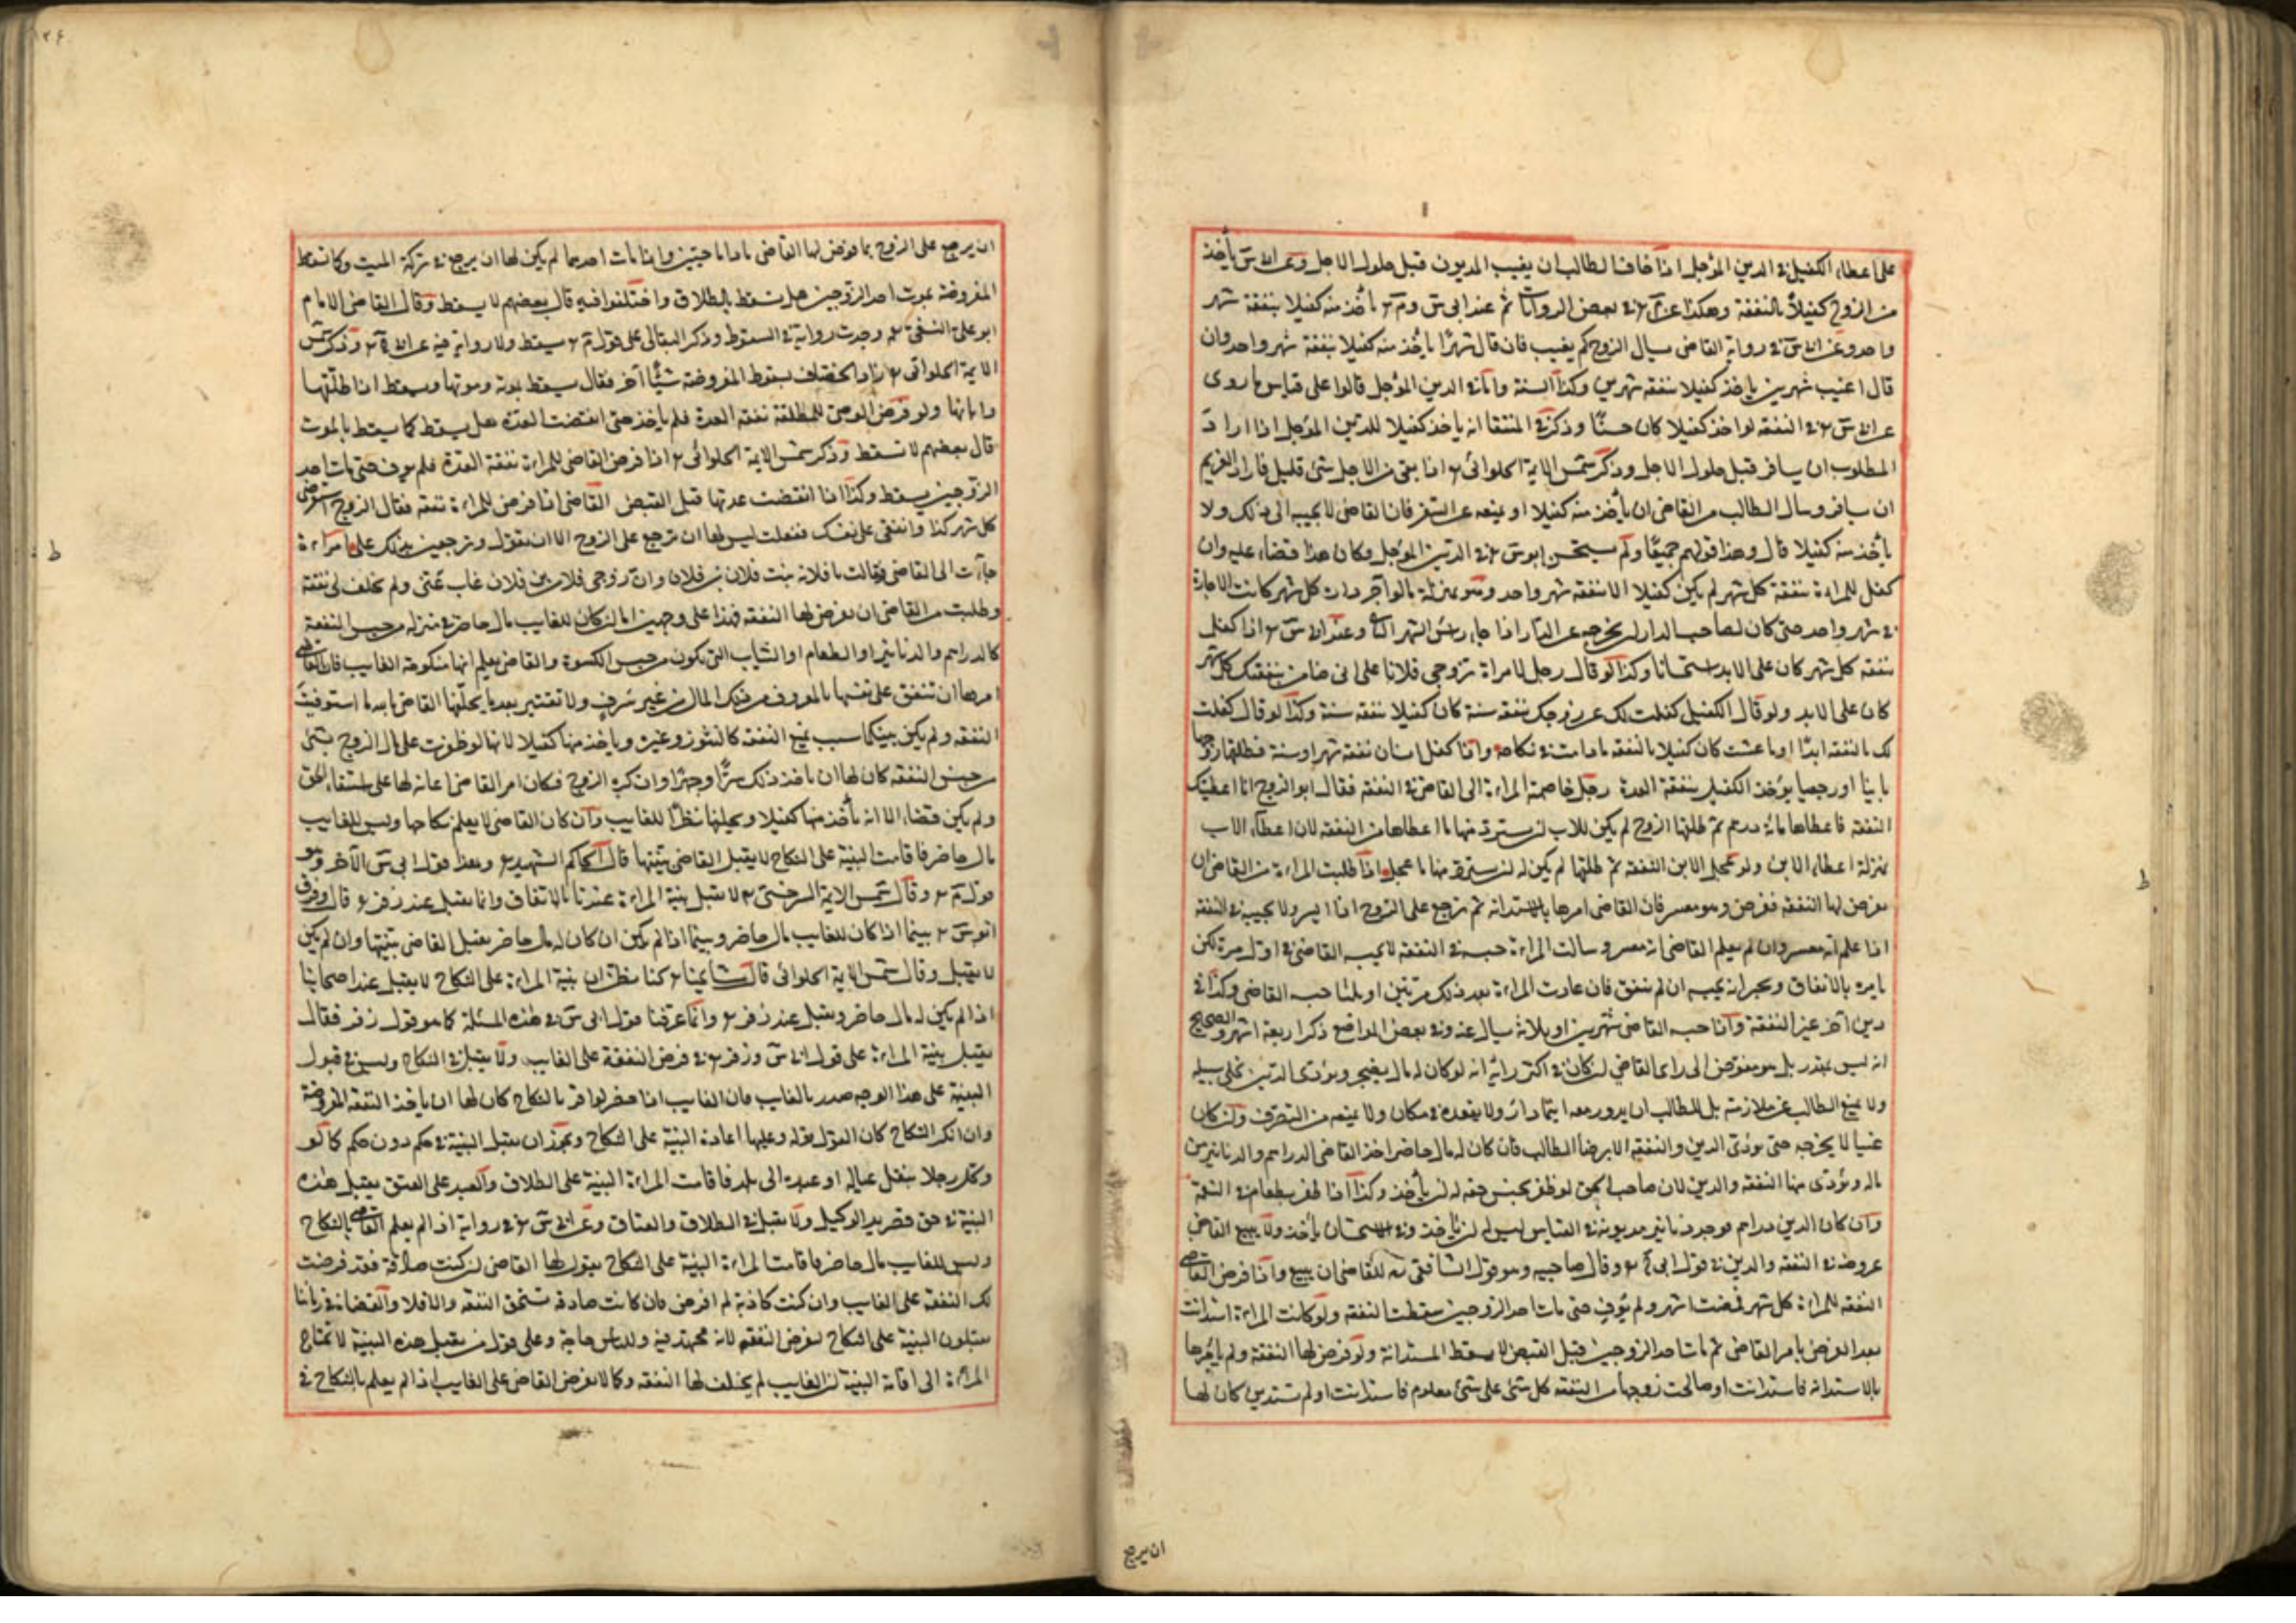 على اعطاء الكفيل في الدين المؤجل اذا خاف الطالب ان يغيب المديون قبل حلول الاجل وعن ابي س يأخذ
من الزوج كفيلا بالنفقة وهكذا عن في بعض الروايات ثم عند ابي س وم يأخذ منه كفيلا بنفقة شهر
واحد وعن ابي س في رواية القاضي يسال الزوج كم يغيب فان قال شهرا يأخذ منه كفيلا بنفقة شهر واحد وان
قال اغيب شهرين ياخذ كفيلا بنفقة شهرين وكذا السنة واما في الدين المؤجل قالوا على قياس ما روى
عن ابي س في النفقة لو اخذ كفيلا كان حسنا وذكر في المنتقا انه ياخذ كفيلا للدين المؤجل اذا اراد
المطلوب ان يسافر قبل حلول الاجل وذكر شمس الايمة الحلوائي اذا بقي من الاجل شئ قليل فاراد الغريم
ان يسافر وسال الطالب من القاضي ان يأخذ منه كفيلا او يمنعه عن السفر فان القاضي لا يجيبه الى ذلك ولا
يأخذ منه كفيلا قال وهذا قولهم جميعا ولم يستحسن ابو س في الدين المؤجل وكان هذا قضاء عليه وان
كفل للمراءة بنفقة كل شهر لم يكن كفيلا الا بنفقة شهر واحد وهو بمنزلة ما لو آجر دارا كل شهر كانت الاجارة
في شهر واحد حتى كان لصاحب الدار ان يخرجه عن الدار اذا جاء راس الشهر الثاني وعند ابي س اذا كفل
بنفقة كل شهر كان على الابد استحسانا وكذا لو قال رجل لامراة تزوجي فلانا على اني ضامن بنفقتك كل شهر
كان على الابد ولو قال الكفيل كفلت لك عن زوجك بنفقة سنة كان كفيلا بنفقة سنة وكذا لو قال كفلت
لك بالنفقة ابدا او ما عشت كان كفيلا بالنفقة ما دامت في نكاحه واذا كفل انسان نفقة شهر او سنة فطلقها زوجها
باينا او رجعيا يؤخذ الكفيل بنفقة العدة رجل خاصمته المراءة الى القاضي في النفقة فقال ابو الزوج انا اعطيك
النفقة فاعطاها مائة درهم ثم طلقها الزوج لم يكن للاب ان يسترد منها ما اعطاها من النفقة لان اعطاء الاب
بمنزلة اعطاء الابن ولو عجل الابن النفقة ثم طلقها لم يكن له ان يسترد منها ما عجل واذا طلبت المراءة من القاضي ان
يفرض لها النفقة ففرض وهو معسر فان القاضي امرها بالاستدانة ثم ترجع على الزوج اذا ايسر ولا يحبسه في النفقة
اذا علم انه معسر وان لم يعلم القاضي انه معسر وسالت المراءة حبسه في النفقة لا يحبسه القاضي في اول مرة لكن
يامره بالانفاق ويخبر انه يحبسه ان لم ينفق فان عادت المراءة بعد ذلك مرتين او ثلثا حبسه القاضي وكذا في
دين آخر غير النفقة واذا حبسه القاضي شهرين او ثلاثة يسال عنه وفي بعض المواضع ذكر اربعة اشهر والصحيح
انه ليس بمقدر بل هو مفوض الى راى القاضي ان كان في اكثر رأيه انه لو كان له مال يضجر ويؤدى الدين يخلى سبيله
ولا يمنع الطالب عن ملازمته بل للطالب ان يدور معه اينما دار ولا يقعده في مكان ولا يمنعه من التصرف وان كان
غنيا لا يخرجه حتى يؤدى الدين والنفقة الا برضا الطالب فان كان له مال حاضر اخذ القاضي الدراهم والدنانير من
ماله ويؤدى منها النفقة والدين لان صاحب الحق لو ظفر بجنس حقه له ان يأخذ وكذا اذا ظفر بطعام في النفقة
وان كان الدين دراهم فوجد دنانير مديونه في القياس ليس له ان يأخذ وفي الاستحسان يأخذ ولا يبيع القاضي
عروضه في النفقة والدين في قول ابي ح وقال صاحبيه وهو قول الشافعي للقاضي ان يبيع واذا فرض القاضي
النفقة للمراءة كل شهر فمضت اشهر ولم يوف حتى مات احد الزوجين سقطت النفقة ولو كانت المراءة استدانت
بعد الفرض بامر القاضي ثم مات احد الزوجين قبل القبض لا يسقط المستدانة ولو فرض لها النفقة ولم يامرها
بالاستدانة فاستدانت او صالحت زوجها من النفقة كل شئ على شئ معلوم فاستدانت او لم تستدين كان لها
ان يرجع
١٢٤
ان يرجع على الزوج بما فرض لها القاضي ما داما حيين واذا مات احدهما لم يكن لها ان يرجع في تركة الميت وكما تسقط
المفروضة بموت احد الزوجين هل تسقط بالطلاق واختلفوا فيه قال بعضهم لا يسقط وقال القاضي الامام
ابو علي النسفي وجدت رواية في السقوط وذكر البقالي على قول م يسقط ولا رواية فيه عن ابي ح وذكر شمس
الايمة الحلوائي زاد الخصاف بسقوط المفروضة شيئا آخر فقال يسقط بموته وموتها ويسقط اذا طلقها
وابانها ولو فرض القاضي للمطلقة نفقة العدة فلم ياخذ حتى انقضت العدة هل يسقط كما يسقط بالموت
قال بعضهم لا تسقط وذكر شمس الايمة الحلوائي اذا فرض القاضي للمراءة نفقة العدة فلم يوف حتى مات احد
الزوجين يسقط وكذا اذا انقضت عدتها قبل القبض القاضي اذا فرض للمراءة نفقة فقال الزوج استقرضي
كل شهر كذا وانفقي على نفسك ففعلت ليس لها ان ترجع على الزوج الا ان يقول وترجعين بذلك علي امراءة
جاءت الى القاضي فقالت انا فلانة بنت فلان بن فلان وان زوجي فلان بن فلان غاب عني ولم يخلف لي نفقة
وطلبت من القاضي ان يفرض لها النفقة فهذا على وجهين اما ان كان للغايب مال حاضر في منزله من جنس النفقة
كالدراهم والدنانير او الطعام او الثياب التي تكون من جنس الكسوة والقاضي يعلم انها منكوحة الغايب فان القاضي
امرها ان تنفق على نفسها بالمعروف من ذلك المال من غير سرف ولا تقتير بعد ما يحلفها القاضي بالله ما استوفيت
النفقة ولم يكن بينكما سبب يمنع النفقة كالنشوز وغيره وياخذ منها كفيلا لانها لو ظفرت على مال الزوج بشئ
من جنس النفقة كان لها ان تاخذ ذلك سرا وجهرا وان كره الزوج فكان امر القاضي اعانة لها على استيفاء الحق
ولم يكن قضاء الا انه يأخذ منها كفيلا ويحلفها نظرا للغايب وان كان القاضي لا يعلم نكاحها وليس للغايب
مال حاضر فاقامت البينة على النكاح لا يقبل القاضي بينتها قال الحاكم الشهيد وهذا قول ابي س الآخر وهو
قول م وقال شمس الايمة السرخسي لا يقبل بينة المراءة عندنا بالاتفاق وانما يقبل عند زفر قال وفرق
ابو س بينما اذا كان للغايب مال حاضر وبينما اذا لم يكن ان كان له مال حاضر يقبل القاضي بينتها وان لم يكن
لا يقبل وقال شمس الايمة الحلوائي قال مشايخنا كنا نظن ان بينة المراءة على النكاح لا يقبل عند اصحابنا
اذا لم يكن له مال حاضر ويقبل عند زفر وانما عرفنا قول ابي س في هذه المسئلة كما هو قول زفر فقال
يقبل بينة المراءة على قول ابي س وزفر في فرض النفقة على الغايب ولا يقبل في النكاح وليس في قبول
البينة على هذا الوجه ضرر بالغايب فان الغايب اذا حضر لو اقر بالنكاح كان لها ان ياخذ النفقة المفروضة
وان انكر النكاح كان القول قوله وعليها اعادة البينة على النكاح ويجوز ان يقبل البينة في حكم دون حكم كما لو
وكل رجلا بنقل عياله او عبده الى بلد فاقامت المراءة البينة على الطلاق والعبد على العتق يقبل هذه
البينة في حق قصر يد الوكيل ولا يقبل في الطلاق والعتاق وعن ابي س في رواية اذا لم يعلم القاضي بالنكاح
وليس للغايب مال حاضر فاقامت المراءة البينة على النكاح يقول لها القاضي ان كنت صادقة فقد فرضت
لك النفقة على الغايب وان كنت كاذبة لم افرض فان كانت صادقة تستحق النفقة والا فلا والقضاة في زماننا
يقبلون البينة على النكاح لفرض النفقة لانه مجتهد فيه وللناس حاجة وعلى قول من يقبل هذه البينة لا تحتاج
المراءة الى اقامة البينة ان الغايب لم يخلف لها النفقة وكما لا يفرض القاضي على الغايب اذا لم يعلم بالنكاح في